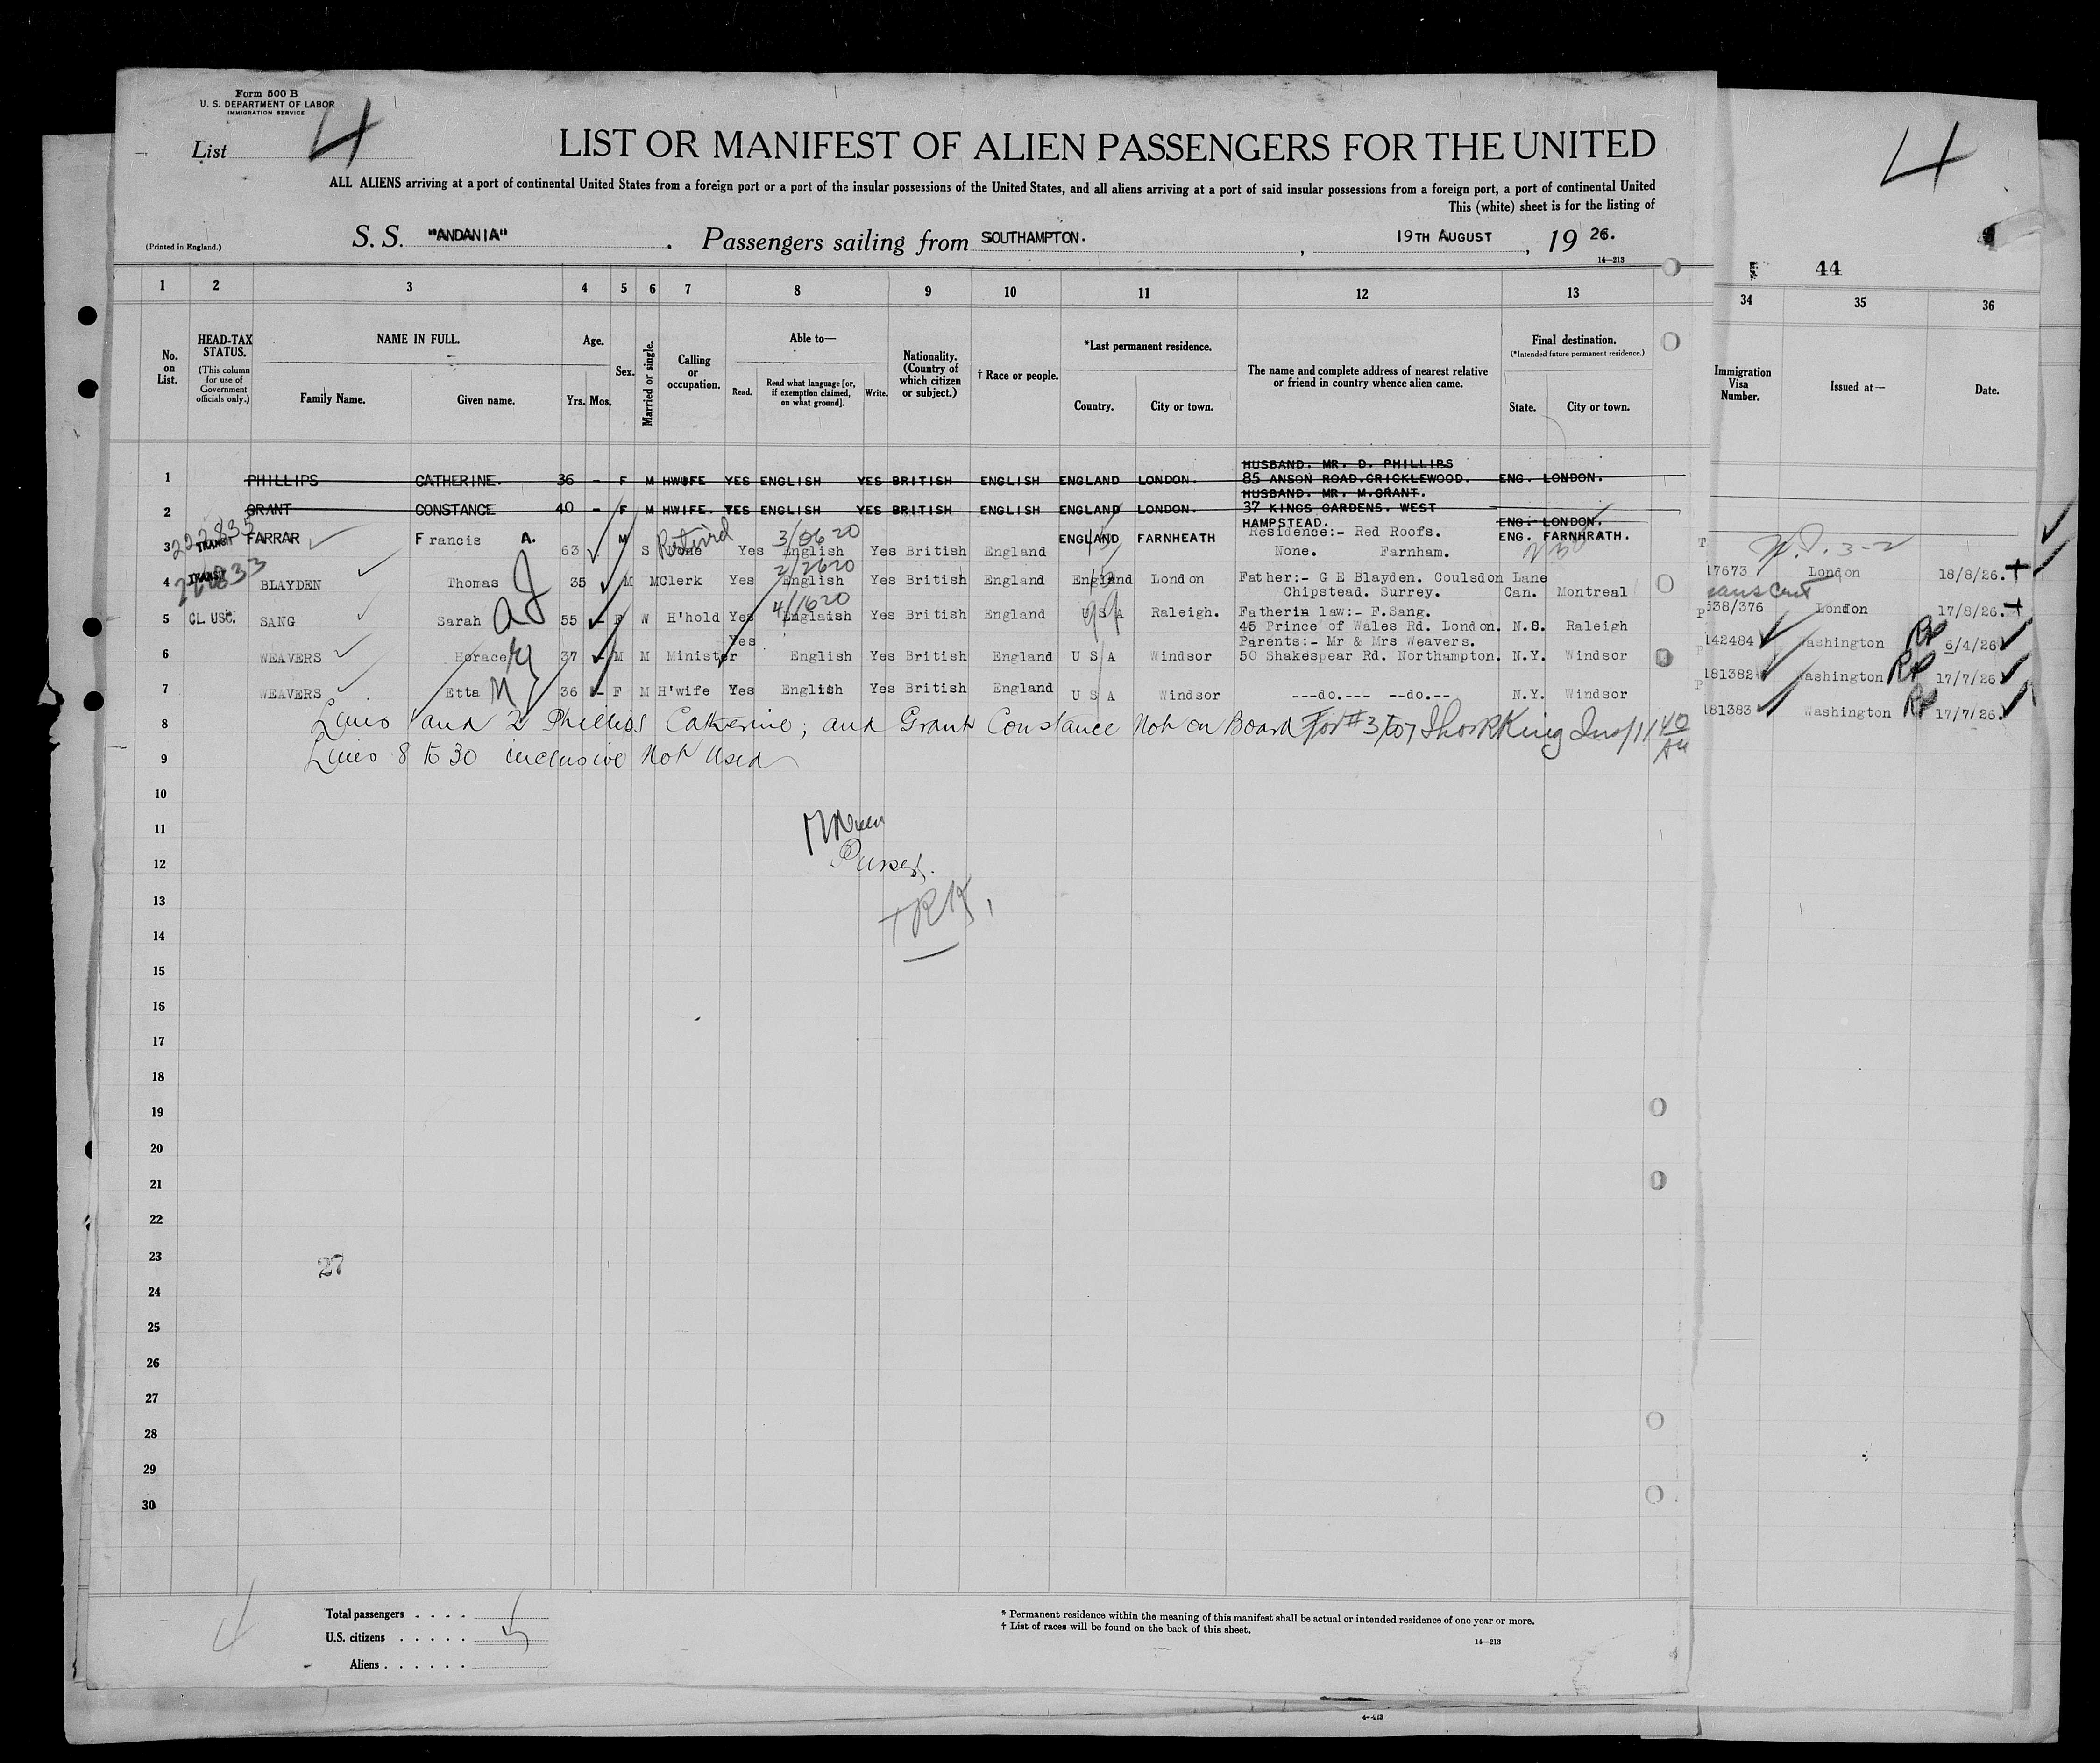 Form 500 B
U. S. DEPARTMENT OF LABOR
IMMIGRATION SERVICE
List 4
LIST OR MANIFEST OF ALIEN PASSENGERS FOR THE UNITED
ALL ALIENS arriving at a port of continental United States from a foreign port or a port of the insular possessions of the United States, and all aliens arriving at a port of said insular possessions from a foreign port, a port of continental United
This (white) sheet is for the listing of
(Printed in England.) S. S. "ANDANIA" . Passengers sailing from SOUTHAMPTON. , 19TH AUGUST , 19 26.
14—213
4
44
1 2 3 4 5 6 7 8 9 10 11 12 13 34 35 36
No. on List.
HEAD-TAX STATUS.
(This column for use of Government officials only.)
NAME IN FULL.
Family Name. Given name.
Age.
Yrs. Mos.
Sex.
Married or single.
Calling or occupation.
Able to—
Read. Read what language [or, if exemption claimed, on what ground]. Write.
Nationality. (Country of which citizen or subject.)
† Race or people.
*Last permanent residence.
Country. City or town.
The name and complete address of nearest relative or friend in country whence alien came.
Final destination.
(*Intended future permanent residence.)
State. City or town.
Immigration Visa Number.
Issued at—
Date.
HUSBAND. MR. D. PHILLIPS
1 PHILLIPS CATHERINE. 36 - F M HWIFE YES ENGLISH YES BRITISH ENGLISH ENGLAND LONDON. 85 ANSON ROAD.CRICKLEWOOD. ENG. LONDON.
HUSBAND. MR. M.GRANT.
2 GRANT CONSTANCE 40 - F M HWIFE. YES ENGLISH YES BRITISH ENGLISH ENGLAND LONDON. 37 KINGS GARDENS. WEST
HAMPSTEAD. ENG. LONDON.
222835 TRANSIT 3/0620
3 FARRAR Francis A. M Retired ENGLAND FARNHEATH Residence:- Red Roofs. ENG. FARNHRATH.
63 S Yes English Yes British England None. Farnham.
222833 TRANSIT 2/2620
4 BLAYDEN Thomas 35 M M Clerk Yes English Yes British England England London Father:- G E Blayden. Coulsdon Lane 17673 London 18/8/26.
Chipstead. Surrey. Can. Montreal
4/1620
5 CL. USC. SANG Sarah 55 F W H'hold Yes Englaish Yes British England U S A Raleigh. Fatherin law:- F.Sang. 538/376 London 17/8/26.
45 Prince of Wales Rd. London. N.S. Raleigh
Yes Parents:- Mr & Mrs Weavers. 142484 ashington 6/4/26
6 WEAVERS Horace 37 M M Minister English Yes British England U S A Windsor 50 Shakespear Rd. Northampton. N.Y. Windsor 181382 ashington 17/7/26
7 WEAVERS Etta M 36 F M H'wife Yes English Yes British England U S A Windsor ---do.--- --do.-- N.Y. Windsor 181383 Washington 17/7/26.
8 Lines 1 and 2 Phillips Catherine; and Grant Constance Not on Board For #3 to 7
9 Lines 8 to 30 inclusive Not Used
10
11
12 Purser.
13 TRK
14
15
16
17
18
19
20
21
22
23 27
24
25
26
27
28
29
30
Total passengers . . . .
U.S. citizens . . . . . 5
Aliens . . . . . .
* Permanent residence within the meaning of this manifest shall be actual or intended residence of one year or more.
† List of races will be found on the back of this sheet.
14—213